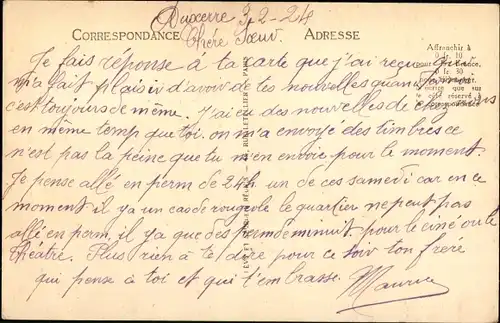 Auxerre 3-2-24
CORRESPONDANCE Chère Sœur ADRESSE
Affranchir à
0 fr. 10
0 fr. 30
Je fais réponse à ta carte que j'ai reçu
m'a fait plaisir d'avoir de tes nouvelles quant à moi
c'est toujours de même. J'ai eu des nouvelles de chez nous
en même temps que toi. on m'a envoyé des timbres ce
n'est pas la peine que tu m'en envoie pour le moment.
Je pense allé en perm de 24h un de ces samedi car en ce
moment il ya un cas de rougeole le quartier ne peut pas
allé en perm, il ya que des perm de minuit pour le ciné ou le
théatre. Plus rien à te dire pour ce soir ton frère
qui pense à toi et qui t'embrasse. Maurice